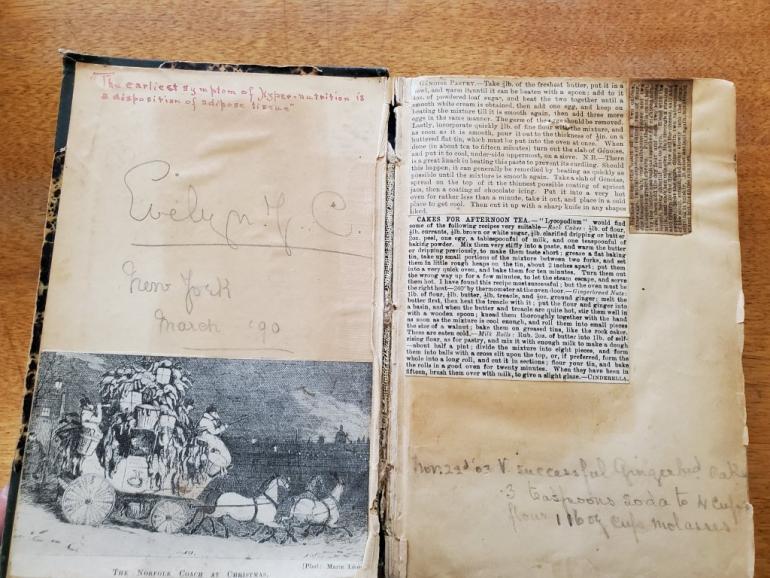 "The earliest symptom of Hyper-nutrition is
a disposition of adipose tissue"
New York
March 90
THE NORFOLK COACH AT CHRISTMAS.
GÉNOISE PASTRY.—Take ½lb. of the freshest butter, put it in a
bowl, and warm it until it can be beaten with a spoon; add to it
of powdered loaf sugar, and beat the two together until a
smooth white cream is obtained, then add one egg, and keep on
beating the mixture till it is smooth again, then add three more
eggs in the same manner. The germ of the eggs should be removed.
Lastly, incorporate quickly ½lb. of fine flour with the mixture, and
as soon as it is smooth, pour it out to the thickness of ½in. on a
buttered flat tin, which must be put into the oven at once. When
done (in about ten to fifteen minutes) turn out the slab of Génoise,
and put it to cool, under-side uppermost, on a sieve. N.B.—There
is a great knack in beating this paste to prevent its curdling. Should
this happen, it can generally be remedied by beating as quickly as
possible until the mixture is smooth again. Take a slab of Génoise,
spread on the top of it the thinnest possible coating of apricot
jam, then a coating of chocolate icing. Put it into a very hot
oven for rather less than a minute, take it out, and place in a cold
place to get cool. Then cut it up with a sharp knife in any shapes
liked.
CAKES FOR AFTERNOON TEA.—"Lycopodium" would find
some of the following recipes very suitable—Rock Cakes: ½lb. of flour,
¼lb. currants, ¼lb. brown or white sugar, ¼lb. clarified dripping or butter
2oz. peel, one egg, a tablespoonful of milk, and one teaspoonful of
baking powder. Mix them very stiffly into a paste, and warm the butter
or dripping previously, to make them taste short; grease a flat baking
tin, take up small portions of the mixture between two forks, and set
them in little rough heaps on the tin, about 2 inches apart; put them
into a very quick oven, and bake them for ten minutes. Turn them out
the wrong way up for a few minutes, to let the steam escape, and serve
them hot. I have found this recipe most successful; but the oven must be
the right heat—240° by thermometer at the oven door.—Gingerbread Nuts:
1lb. of flour, ½lb. butter, ½lb. treacle, and ½oz. ground ginger; melt the
butter first, then heat the treacle with it; put the flour and ginger into
a basin, and when the butter and treacle are quite hot, stir them well in
with a wooden spoon; knead them thoroughly together with the hand
as soon as the mixture is cool enough, and roll them into small pieces
the size of a walnut; bake them on greased tins, like the rock cakes.
These are eaten cold.—Milk Rolls: Rub 2oz. of butter into 1lb. of self-
rising flour, as for pastry, and mix it with enough milk to make a dough
—about half a pint; divide the mixture into eight pieces, and form
them into balls with a cross slit upon the top, or, if preferred, form the
whole into a long roll, and cut it in sections; flour your tin, and bake
the rolls in a good oven for twenty minutes. When they have been in
fifteen, brush them over with milk, to give a slight glaze.—CINDERELLA.
Nov. 22d '03 V. successful Gingerbread Cake
3 teaspoons soda to 4 cups
flour cups molasses